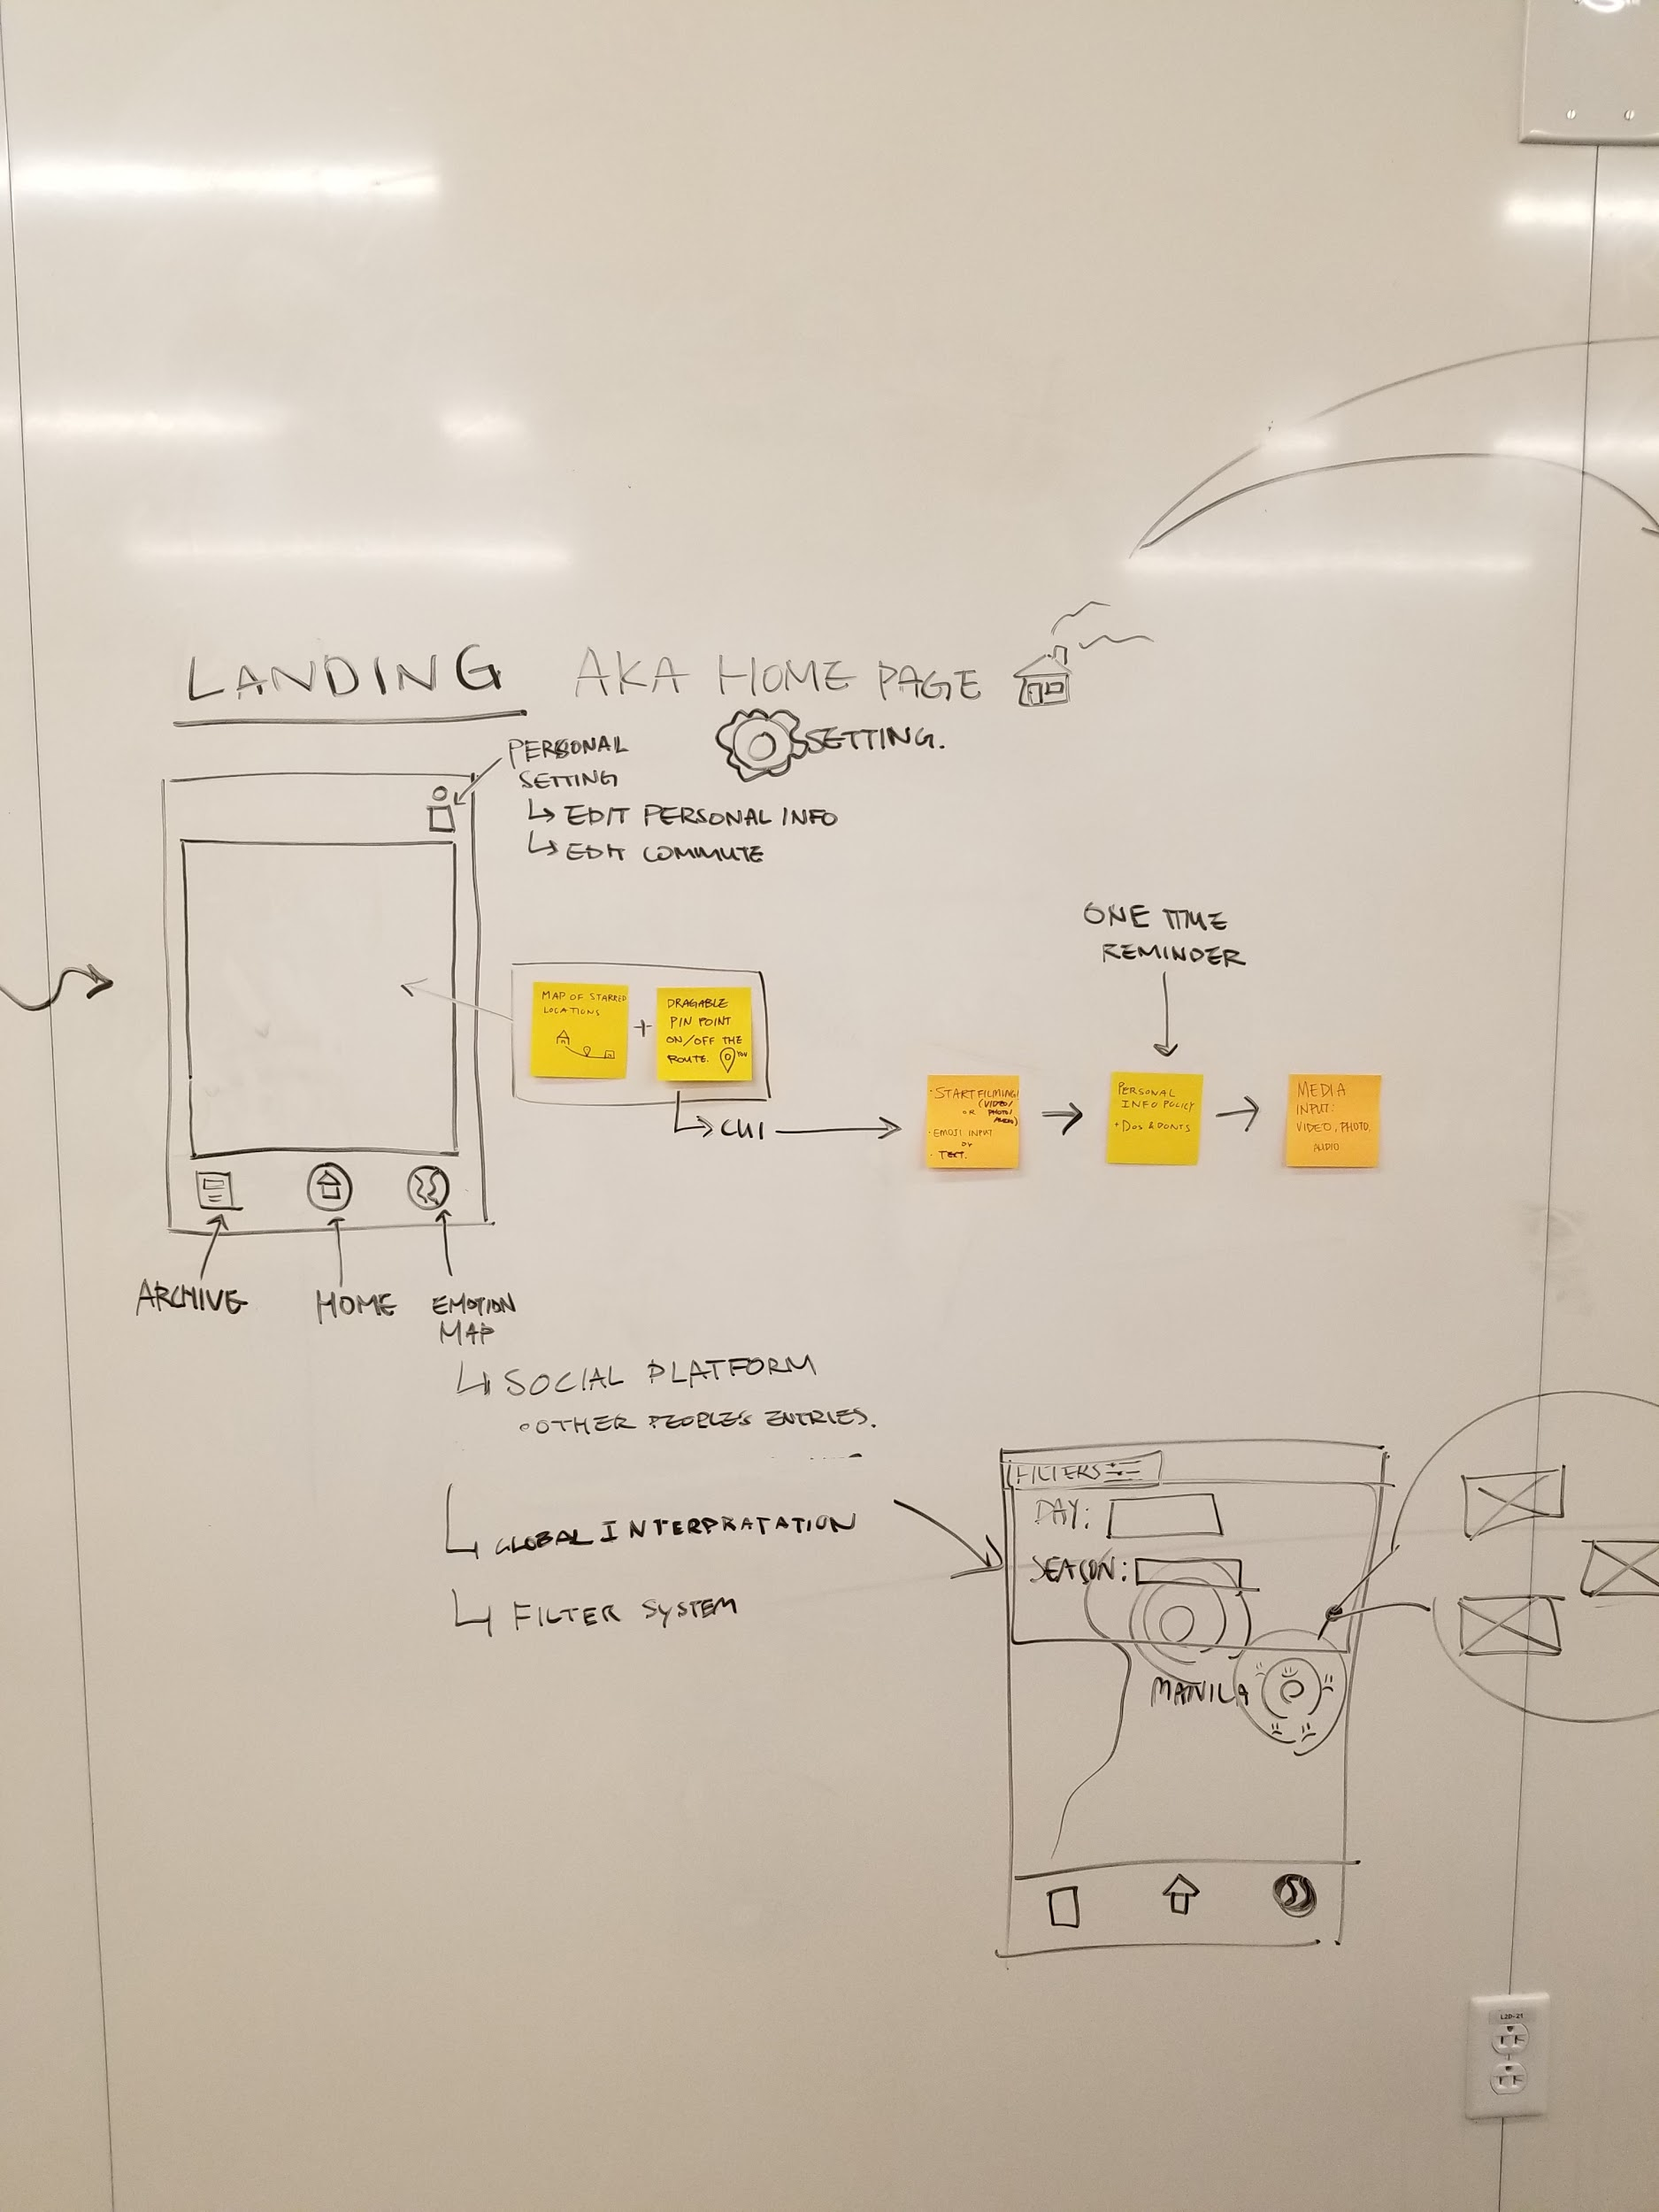 LANDING AKA HOME PAGE
SETTING.
PERSONAL
SETTING
EDIT PERSONAL INFO
EDIT COMMUTE
ONE TIME
REMINDER
MAP OF STARRED
LOCATIONS
+
DRAGABLE
PIN POINT
ON/OFF THE
ROUTE. YOU
CUI
· START FILMING
(VIDEO/
OR PHOTO/
AUDIO)
· EMOJI INPUT
OR
· TEXT.
PERSONAL
INFO POLICY
+ DOs & DONTS
MEDIA
INPUT:
VIDEO, PHOTO.
AUDIO
ARCHIVE
HOME
EMOTION
MAP
SOCIAL PLATFORM
OTHER PEOPLE'S ENTRIES.
GLOBAL INTERPRATATION
FILTER SYSTEM
FILTERS
DAY:
SEASON:
MANILA
L2D-21